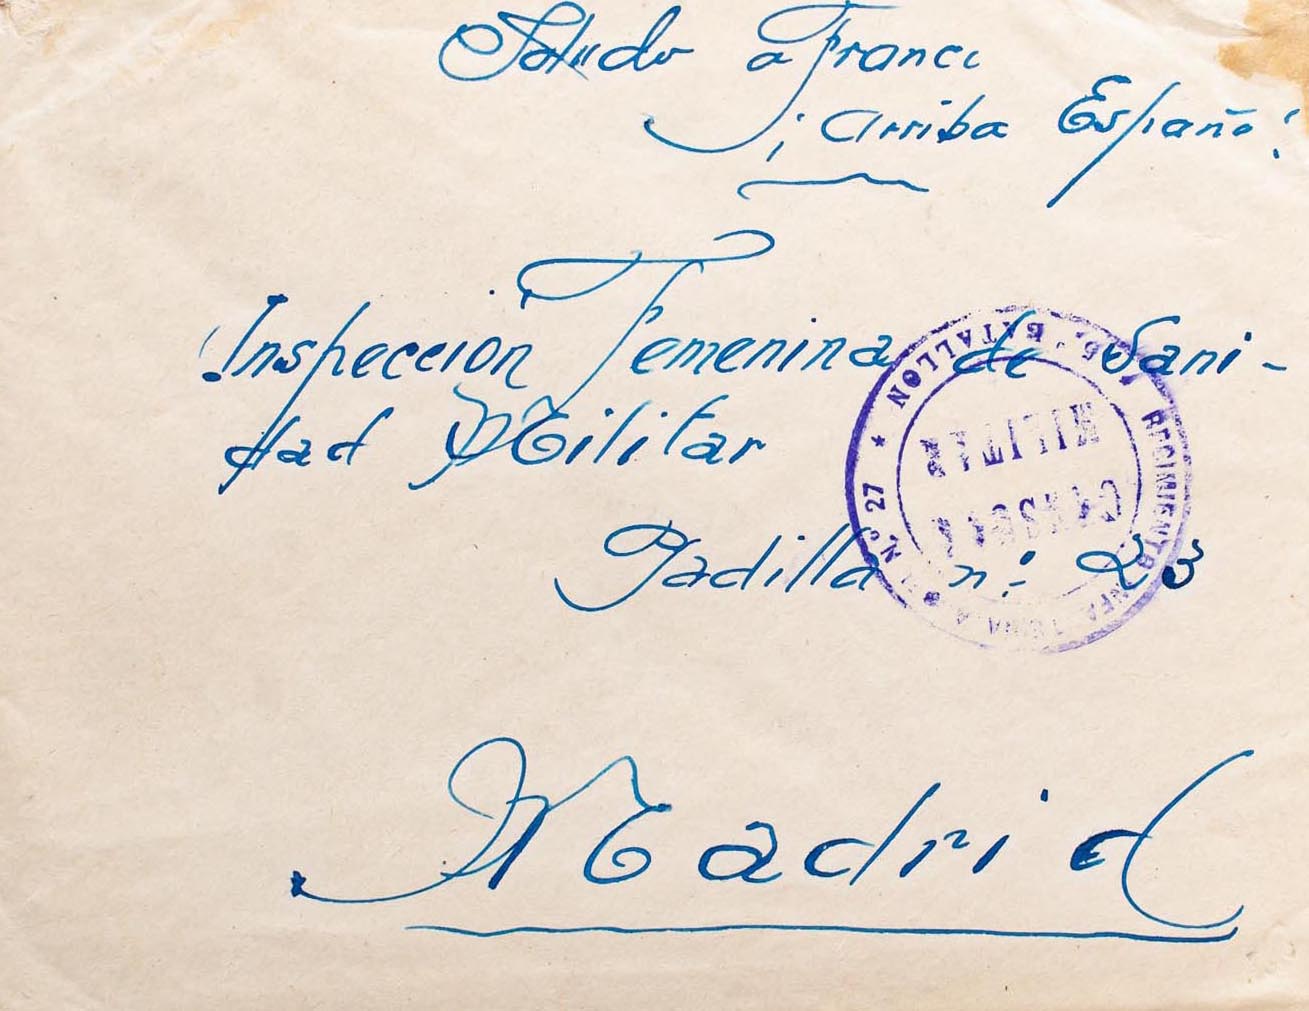 Saludo a Franco
¡Arriba España!
Inspeccion Femenina de Sani-
dad Militar
Padilla nº 23
Madrid
REGIMIENTO INFANTERIA Nº 27 * 5º BATALLON
CENSURA
MILITAR